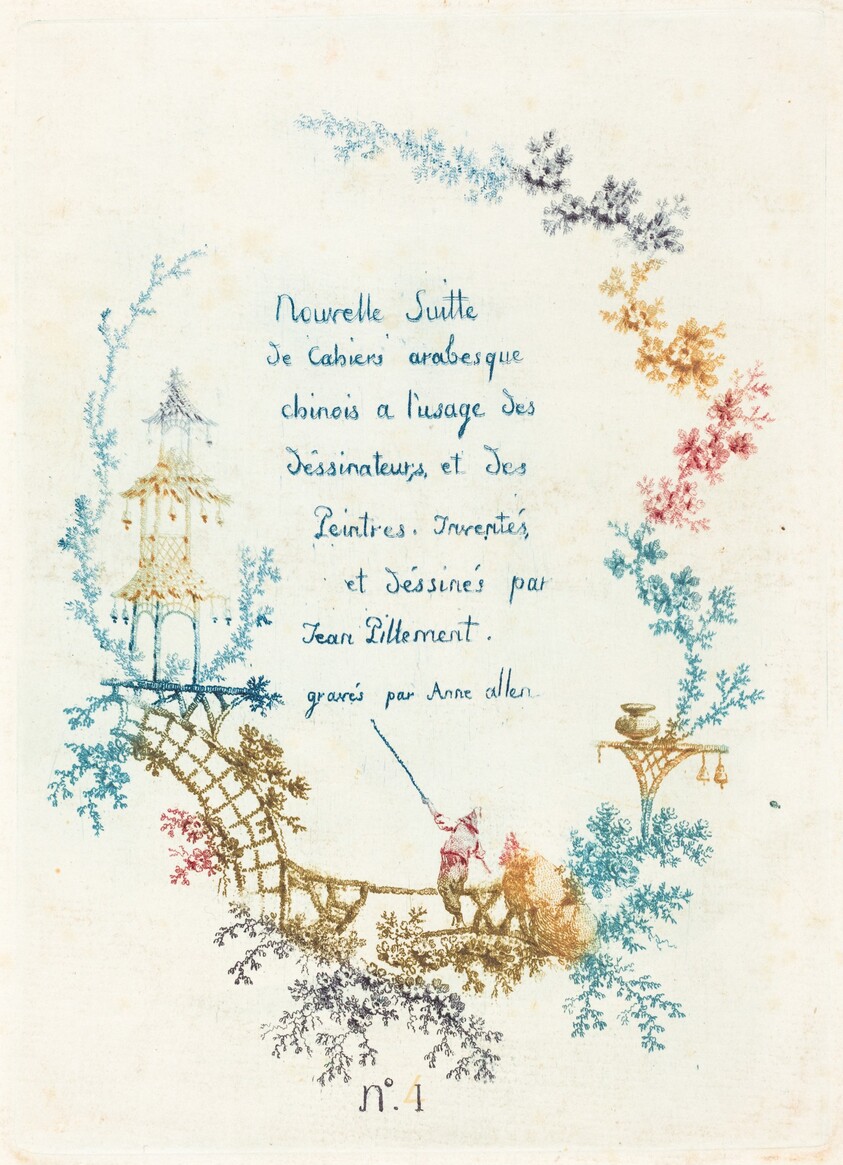 Nouvelle Suitte
de Cahiers arabesque
chinois a l'usage des
déssinateurs, et des
Peintres. Inventés,
et déssinés par
Jean Pillement.
gravés par Anne allen
n.º 1